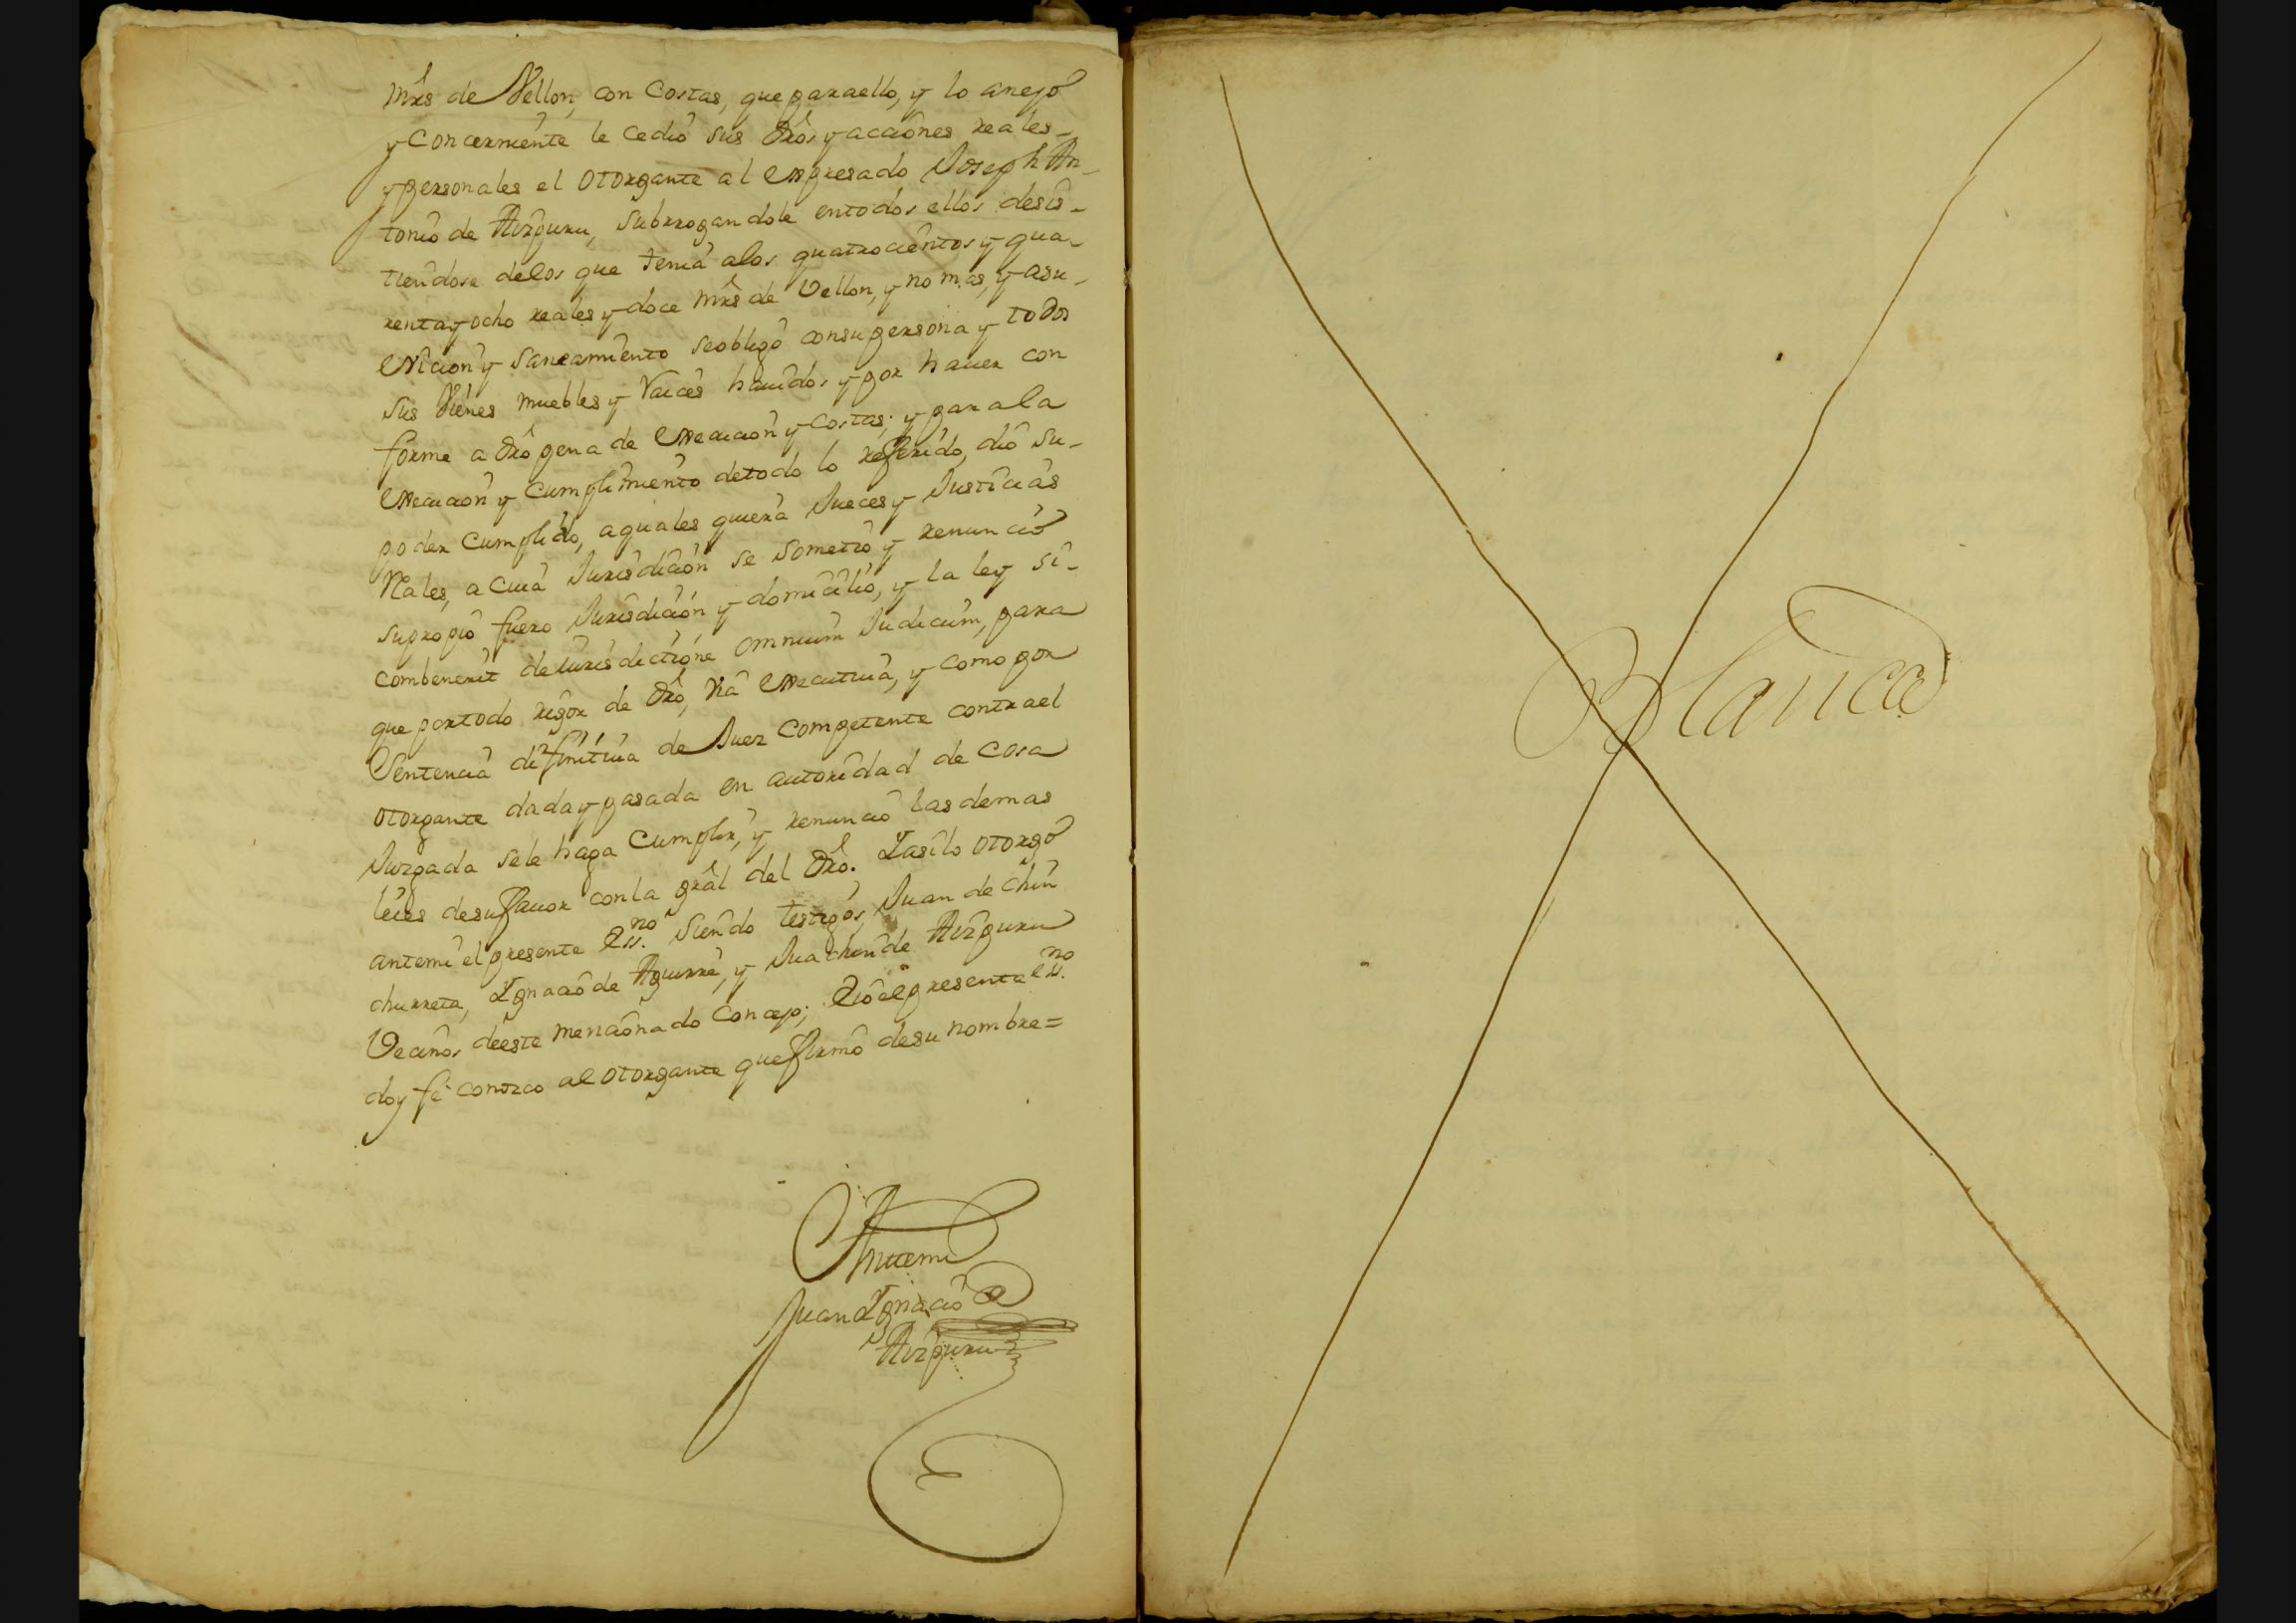 mrs de Vellon, con costas, que para ello, y lo anejo
y concerniente le cedio sus dros y acciones reales
y personales el otorgante al expresado Joseph An-
tonio de Aizpuru, subrrogandole en todos ellos desis-
tiendose delos que tenia alos quatrocientos y qua-
renta y ocho reales y doce mrs de Vellon, y no mas, y a su
eviccion y saneamiento se obligo con su persona y todos
sus vienes muebles y raices havidos y por haver con
forme a dro pena de execucion y costas; y para la
execucion y cumplimiento de todo lo referido, dio su
poder cumplido, a quales quiera Jueces y Justicias
Rales, a cuia Jurisdicion se sometio y renuncio
su propio fuero Jurisdicion y domicilio, y la ley si
combenerit de iurisdictione omnium Judicum, para
que por todo rigor de dro, via executiva, y como por
Sentencia difinitiva de Juez competente contra el
otorgante dada y pasada en autoridad de cosa
Juzgada se le haga cumplir, y renuncio las demas
leies de su favor con la gral del dro. Y asi lo otorgo
ante mi el presente Essno. siendo testigos, Juan de Chin
churreta, Ygnacio de Aguirre, y Juachin de Aizpuru
Vecinos de este mencionado Concejo; E io el presente essno.
doy fe conozco al otorgante que firmo de su nombre=
Ante mi
Juan Ygnacio de
Aizpuru
Blanca